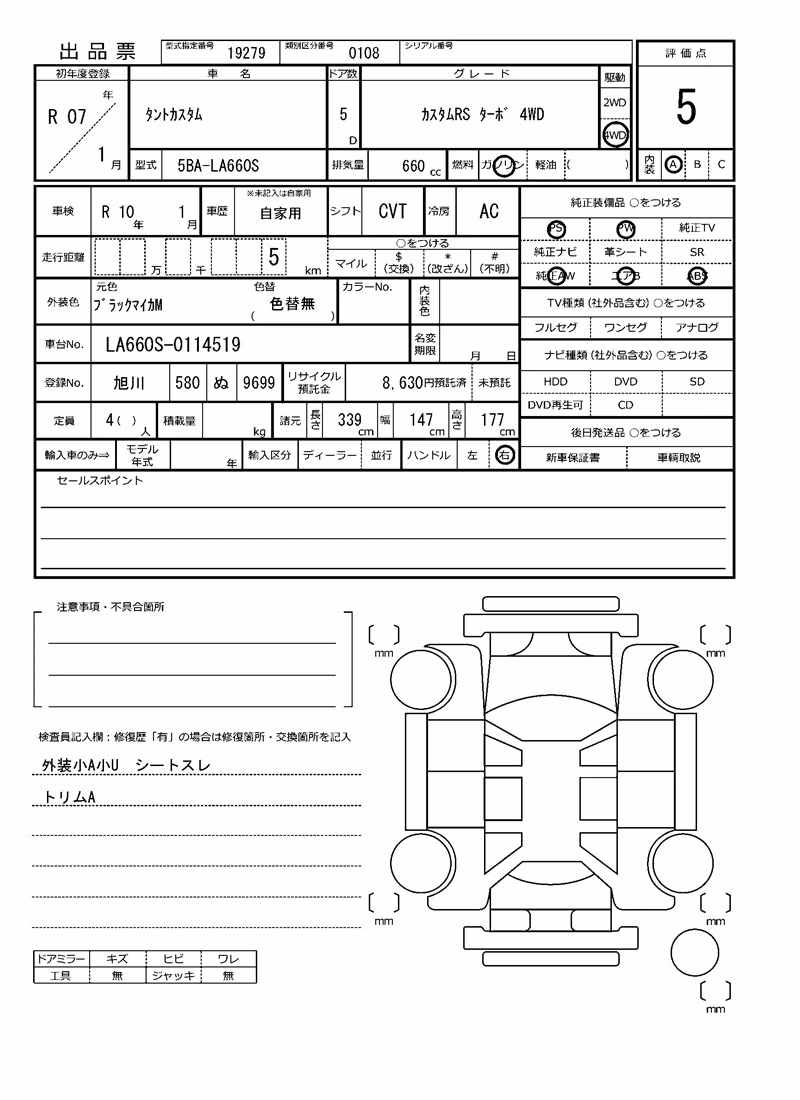 出品票 型式指定番号 19279 類別区分番号 0108 シリアル番号
評価点
初年度登録 車名 ドア数 グレード 駆動
R 07 年 1 月 タントカスタム 5 D カスタムRS ターボ 4WD 2WD 4WD
5
型式 5BA-LA660S 排気量 660 cc 燃料 ガソリン 軽油 ( )
内装 A B C
車検 R 10 年 1 月 車歴 ※未記入は自家用 自家用 シフト CVT 冷房 AC
純正装備品 ○をつける
PS PW 純正TV
走行距離 万 千 5 km ○をつける
マイル $(交換) *(改ざん) #(不明)
純正ナビ 革シート SR
純正AW エアB ABS
外装色 元色 ブラックマイカM 色替 ( 色替無 ) カラーNo. 内装色
TV種類(社外品含む)○をつける
フルセグ ワンセグ アナログ
車台No. LA660S-0114519 名変期限 月 日
ナビ種類(社外品含む)○をつける
登録No. 旭川 580 ぬ 9699 リサイクル預託金 8,630円預託済 未預託
HDD DVD SD
DVD再生可 CD
定員 4( )人 積載量 kg 諸元 長さ 339 cm 幅 147 cm 高さ 177 cm
後日発送品 ○をつける
輸入車のみ⇒ モデル年式 年 輸入区分 ディーラー 並行 ハンドル 左 右
新車保証書 車輌取説
セールスポイント
注意事項・不具合箇所
mm mm
検査員記入欄:修復歴「有」の場合は修復箇所・交換箇所を記入
外装小A小U シートスレ
トリムA
mm mm
ドアミラー キズ ヒビ ワレ
工具 無 ジャッキ 無
mm